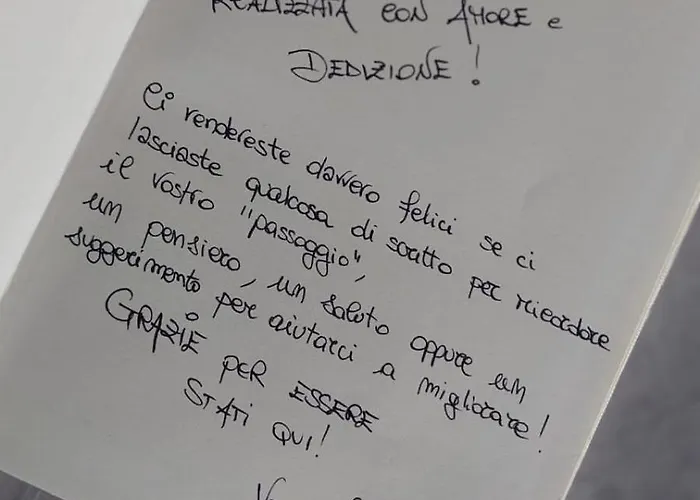 REALIZZATA CON AMORE e
DEDIZIONE!
Ci rendereste davvero felici se ci
lasciaste qualcosa di scritto per ricordare
il vostro "passaggio",
un pensiero, un saluto oppure un
suggerimento per aiutarci a migliorare!
GRAZIE PER ESSERE
STATI QUI!